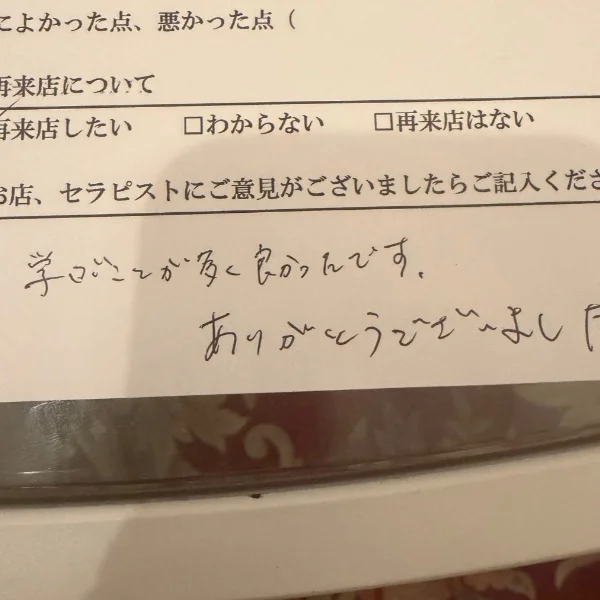 によかった点、悪かった点（
再来店について
再来店したい □わからない □再来店はない
お店、セラピストにご意見がございましたらご記入くださ
学ぶことが多く良かったんです。
ありがとうございました